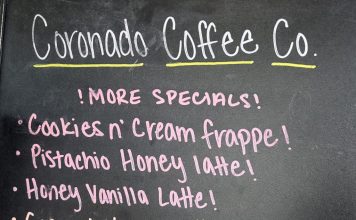 Coronado Coffee Co.
! MORE SPECIALS!
• Cookies n' Cream frappe!
• Pistachio Honey latte!
• Honey Vanilla Latte!